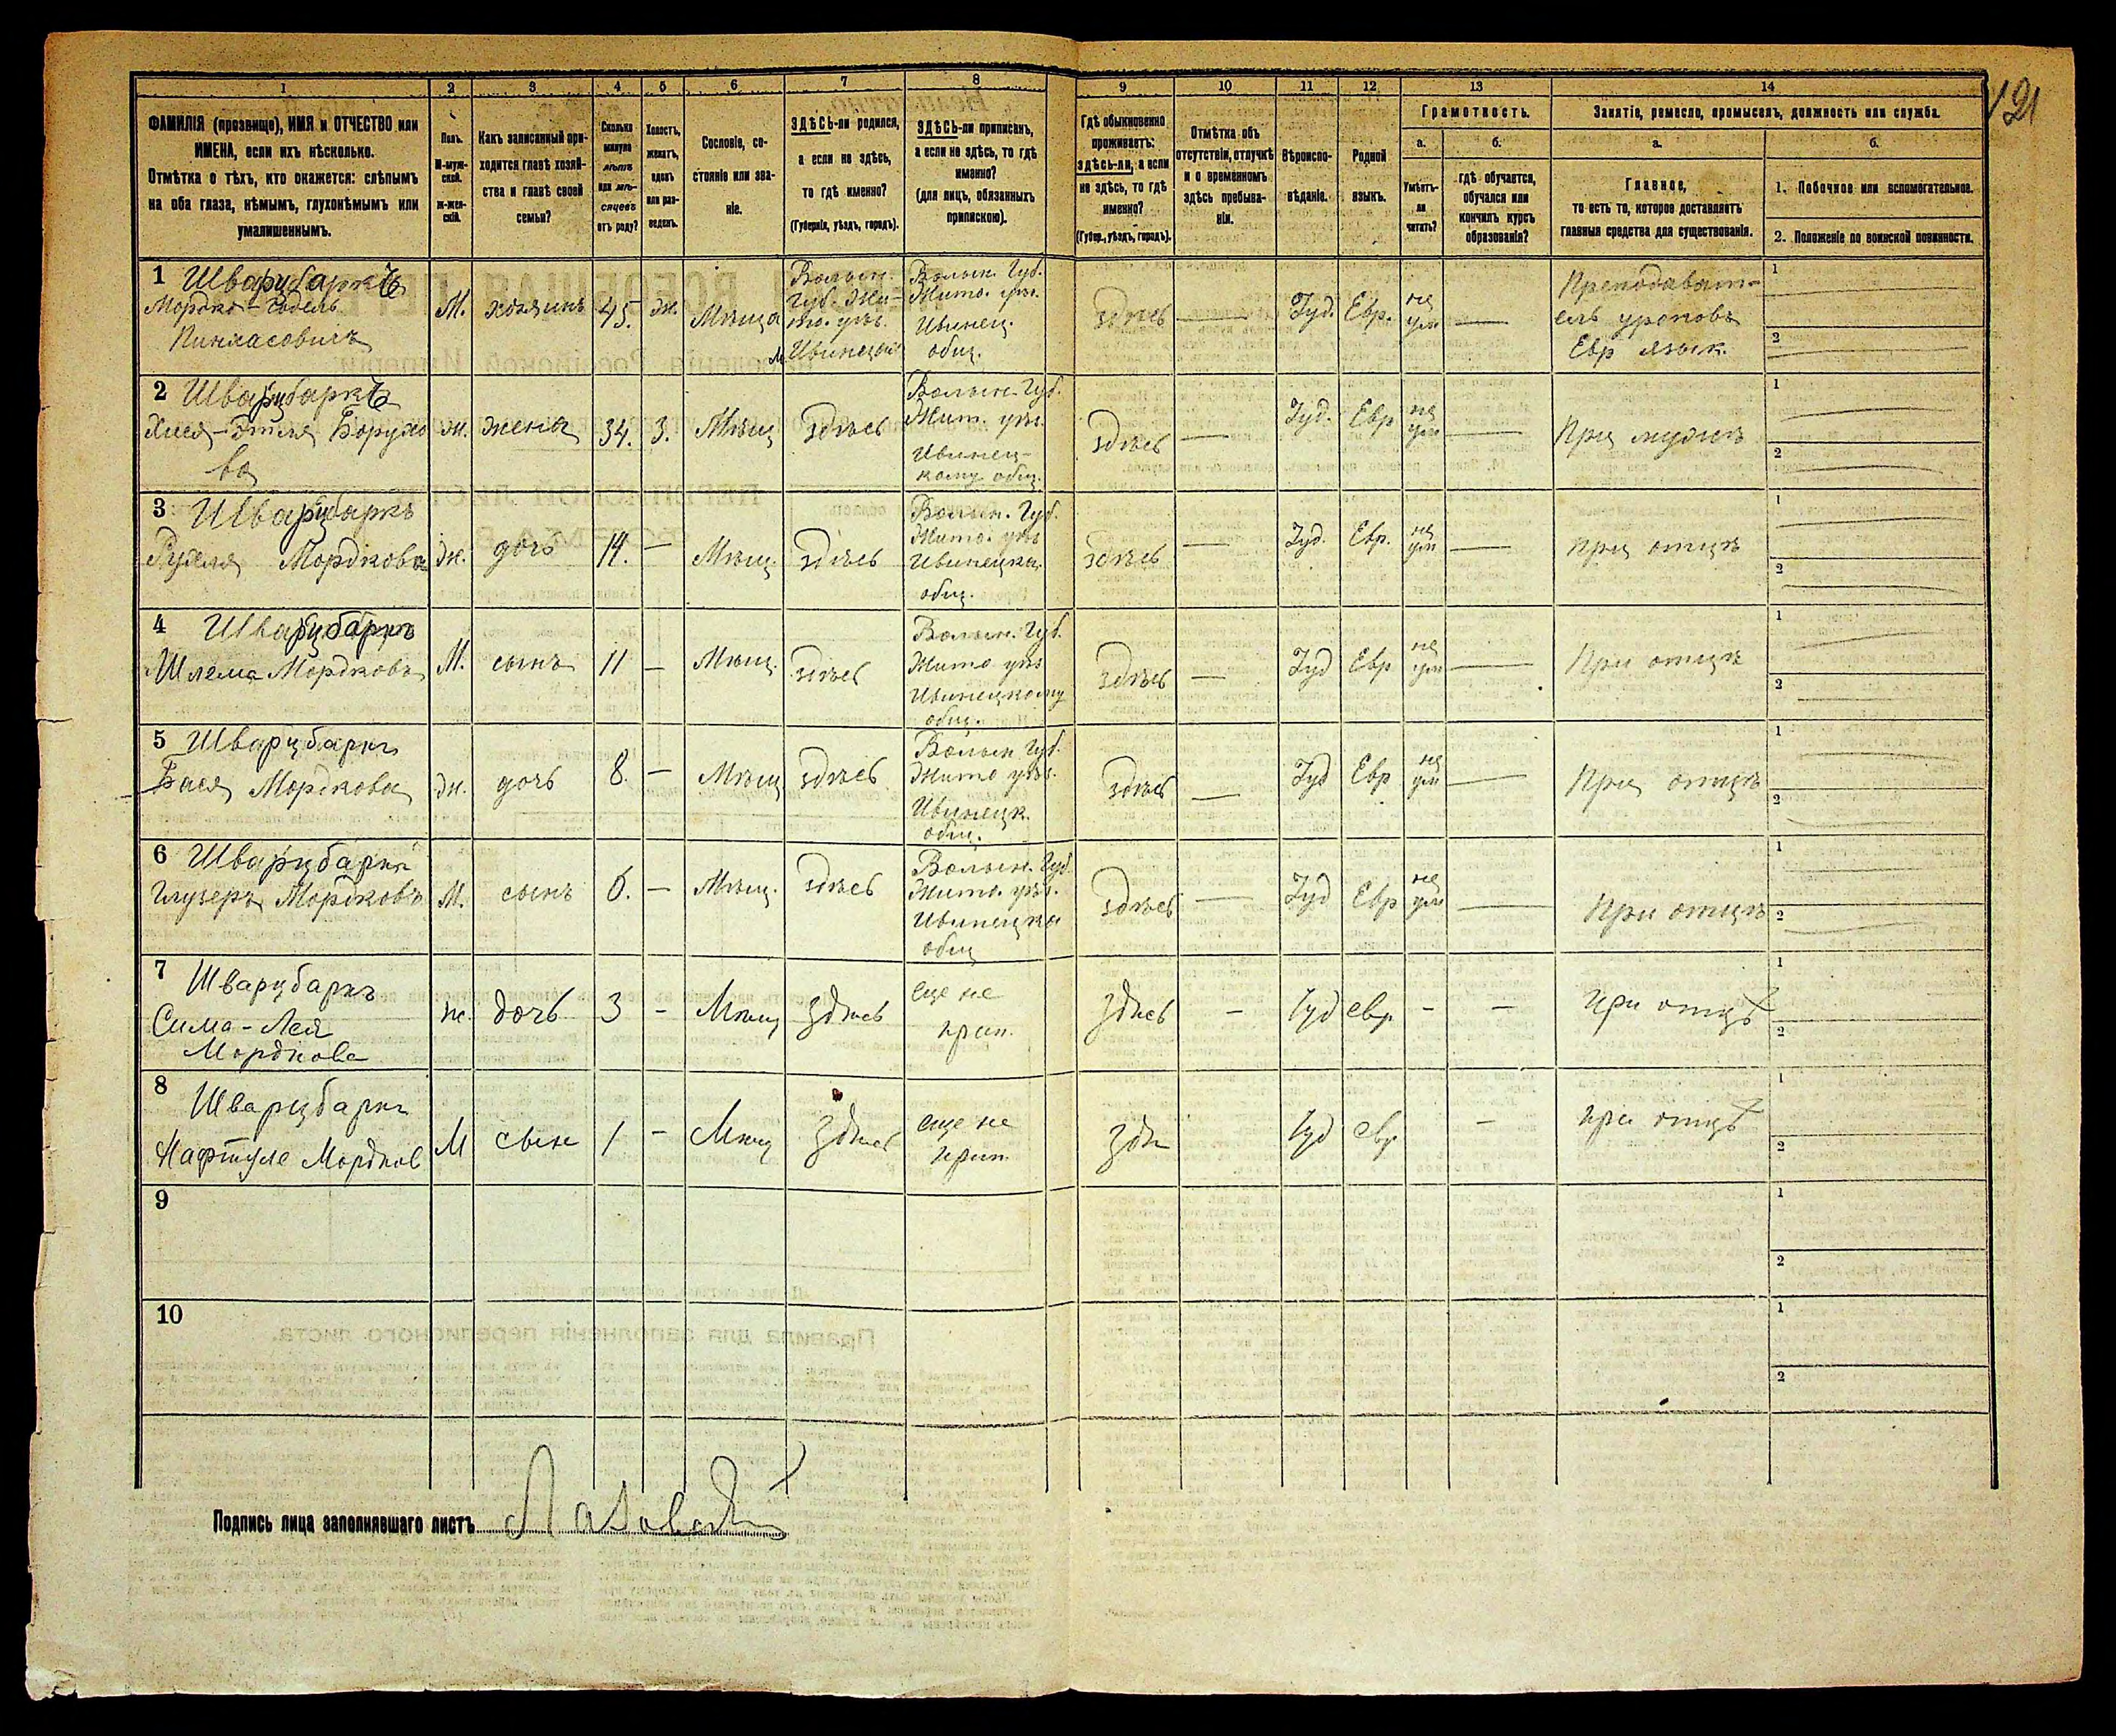 121
1 2 3 4 5 6 7 8 9 10 11 12 13 14
ФАМИЛІЯ (прозвище), ИМЯ и ОТЧЕСТВО или
ИМЕНА, если ихъ нѣсколько.
Отмѣтка о тѣхъ, кто окажется: слѣпымъ
на оба глаза, нѣмымъ, глухонѣмымъ или
умалишеннымъ.
Полъ.
М-муж-
ской.
ж-жен-
скій.
Какъ записанный при-
ходится главѣ хозяй-
ства и главѣ своей
семьи?
Сколько
минуло
лѣтъ
или мѣ-
сяцевъ
отъ роду?
Холостъ,
женатъ,
вдовъ
или раз-
веденъ.
Сословіе, со-
стояніе или зва-
ніе.
ЗДѢСЬ-ли родился,
а если не здѣсь,
то гдѣ именно?
(Губернія, уѣздъ, городъ).
ЗДѢСЬ-ли приписанъ,
а если не здѣсь, то гдѣ
именно?
(для лицъ, обязанныхъ
припискою).
Гдѣ обыкновенно
проживаетъ:
здѣсь-ли, а если
не здѣсь, то гдѣ
именно?
(Губер., уѣздъ, городъ).
Отмѣтка объ
отсутствіи, отлучкѣ
и о временномъ
здѣсь пребыва-
ніи.
Вѣроиспо-
вѣданіе.
Родной
языкъ.
Грамотность.
а.
Умѣетъ-
ли
читать?
б.
гдѣ обучается,
обучался или
кончилъ курсъ
образованія?
Занятіе, ремесло, промыселъ, должность или служба.
а.
Главное,
то есть то, которое доставляетъ
главныя средства для существованія.
б.
1. Побочное или вспомогательное.
2. Положеніе по воинской повинности.
1 Шварцбаркъ
Мордко-Годель
Пинхасовичъ
М.
хозяинъ
45.
ж.
Мѣща
Волын.
Губ. Жи-
то. уѣз.
м Ивинецы
Волын. Губ.
Жито. уѣз.
Ивинец.
общ.
здѣсь
—
Іуд.
Евр.
не
ум
—
Преподават-
ель уроковъ
Евр язык.
1
2
2 Шварцбаркъ
Хися-Этля Борухо
ва
ж.
жена
34.
З.
Мѣщ
здѣсь
Волын. Губ.
Жит. уѣз.
Ивинец-
кому общ.
здѣсь
—
Іуд.
Евр
не
ум
—
При мужѣ
1
2
3 Шварцбаркъ
Рухля Мордкова
ж.
дочь
14.
—
Мѣщ.
здѣсь
Волын. Губ.
Жито. уѣз
Ивинецко.
общ.
здѣсь
—
Іуд.
Евр.
не
ум
—
при отцѣ
1
2
4 Шварцбаркъ
Шлема Мордковъ
М.
сынъ
11
—
Мѣщ.
здѣсь
Волын. Губ.
Жито уѣз
Ивинецкому
общ.
здѣсь
—
Іуд
Евр
не
ум
—
При отцѣ
1
2
5 Шварцбаркъ
Бася Мордкова
ж.
дочь
8.
—
Мѣщ
здѣсь
Волын Губ.
Жито уѣз.
Ивинецк.
общ.
здѣсь
—
Іуд
Евр
не
ум
—
При отцѣ
1
2
6 Шварцбаркъ
Мордковъ
М.
сынъ
6.
—
Мѣщ.
здѣсь
Волын. Губ.
Жито. уѣз.
Ивинецко
общ
здѣсь
—
Іуд
Евр
не
ум
—
При отцѣ
1
2
7 Шварцбаркъ
Сима-Лея
Мордкова
ж.
дочь
3
-
Мѣщ
здѣсь
еще не
прип.
здѣсь
-
Іуд
евр
-
-
при отцѣ
1
2
8
Шварцбаркъ
Нафтуле Мордков
М
сын
1
-
Мѣщ
здѣсь
еще не
прип.
здѣ
Іуд
евр
-
при отцѣ
1
2
9
1
2
10
1
2
Подпись лица заполнявшаго листъ